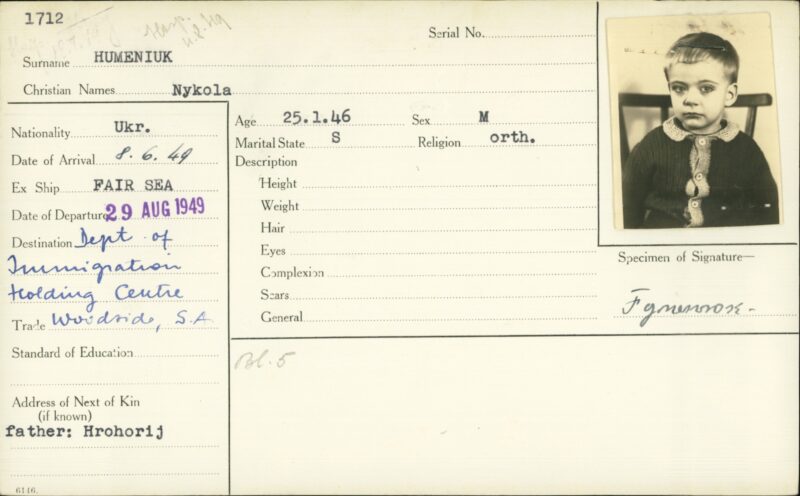 1712
Hosp.
Serial No.
Surname HUMENIUK
Christian Names Nykola
Nationality Ukr.
Date of Arrival 8.6.49
Ex Ship FAIR SEA
Date of Departure 29 AUG 1949
Destination Dept of
Immigration
Holding Centre
Trade Woodside, S.A
Standard of Education
Address of Next of Kin
(if known)
father: Hrohorij
6146.
Age 25.1.46 Sex M
Marital State S Religion orth.
Description
Height
Weight
Hair
Eyes
Complexion
Scars
General
Bl. 5
Specimen of Signature—